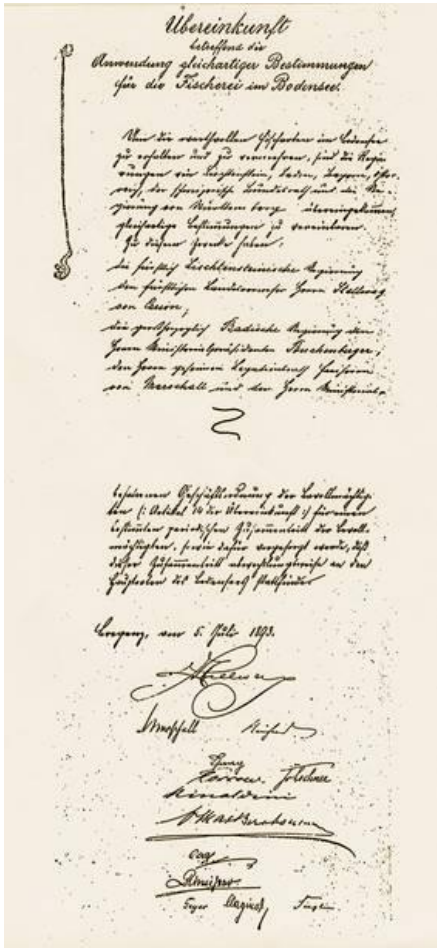 Übereinkunft
betreffend die
Anwendung gleichartiger Bestimmungen
für die Fischerei im Bodensee.
Um die werthvollen Fischarten im Bodensee
zu erhalten und zu vermehren, sind die Regie-
rungen von Liechtenstein, Baden, Bayern, Öster-
reich, der schweizerische Bundesrath und die Re-
gierung von Württemberg übereingekommen,
gleichartige Bestimmungen zu vereinbaren.
Zu diesem Zwecke haben:
die fürstlich Liechtensteinische Regierung
den fürstlichen Landesverweser Herrn Hellweg
von
die großherzoglich Badische Regierung den
Herrn Ministerialpräsidenten Buchenberger,
den Herrn geheimen Legationsrath Freiherrn
von Marschall und den Herrn Ministerial-
Geschäftsordnung der Bevollmächtig-
ten (: Artikel der Übereinkunft :) für einen
bestimmten periodischen Zusammentritt der Bevoll-
mächtigten, sowie dafür vorgesorgt werde, daß
dieser Zusammentritt abwechslungsweise an den
des Bodensees stattfinde.
Bregenz, am 5. Juli 1893.
Marschall